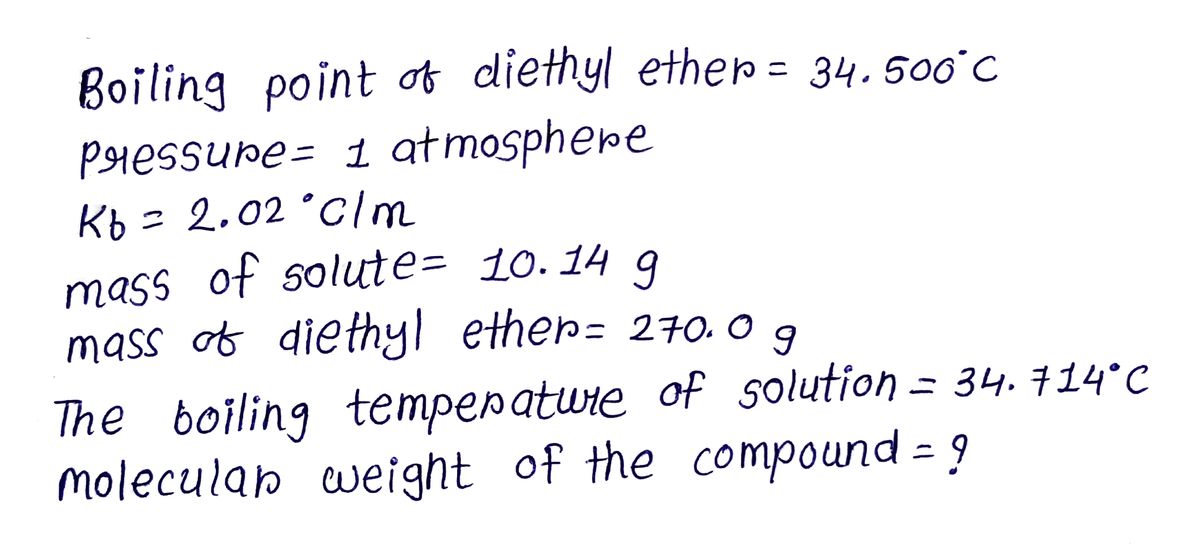 Boiling point of diethyl ether = 34.500°C
Pressure= 1 atmosphere
Kb = 2.02 °C/m
mass of solute= 10.14 g
mass of diethyl ether= 270.0 g
The boiling temperature of solution = 34.714°C
molecular weight of the compound = ?